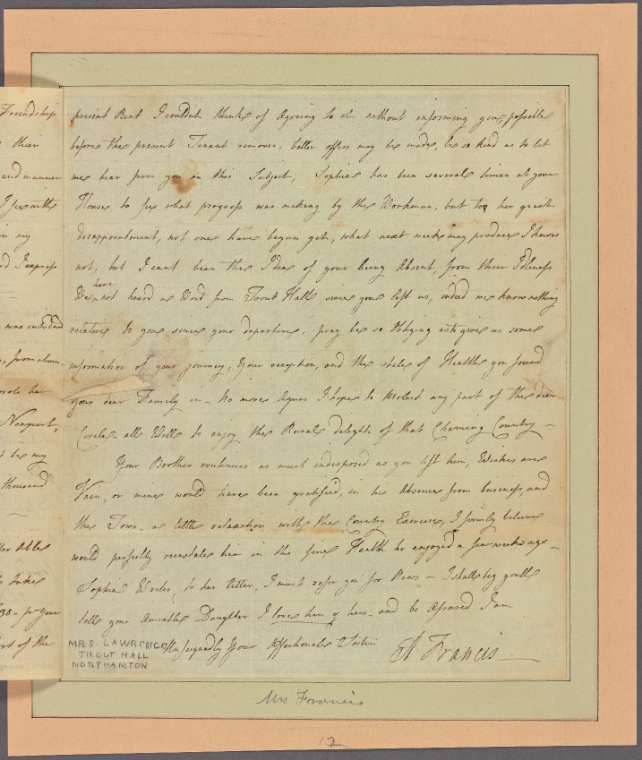 present Rent I couldnt think of Agreeing to it without informing you, possible
before the present Tenant removes, better offers may be made, be so kind as to let
me hear from you on this Subject, Sophia has been several times at your
House to see what progress was making by the Workmen, but to her great
disappointment, not one have begun yet, what next week may produce I know
not; but I cant bear the Idea of your being Absent, from their Idleness
have
We not heard a Word from Trout Hall since you left us, indeed we know nothing
relative to you since your departure, pray be so Obliging as to give us some
information of your journey, Your reception, and the state of Health you found
your dear Family in — No more Agues I hope to Molest any part of the dear
Circle. all Well to enjoy the Rural delights of that Charming Country —
Your Brother continues as much indisposed as you left him, Wishes are
Vain, or mine would have been gratified, in his Absence from business, and
the Town. a little relaxation with the Country Exercise, I firmly believe
would perfectly reinstate him in the fine Health he enjoyed a few weeks ago —
Sophia Writes, to her letter, I must refer you for News — I shall beg youll
tell your Amiable Daughter I love her & hers. and be Assured I am
Unfeignedly Your Affectionate Sister
A Francis
MRS LAWRENCE
TROUT HALL
NORTHAMTON
Mrs Francis
Friendship
their
and manner
in my
I express
was intended
from whom
Newport,
be my
thousand
of the